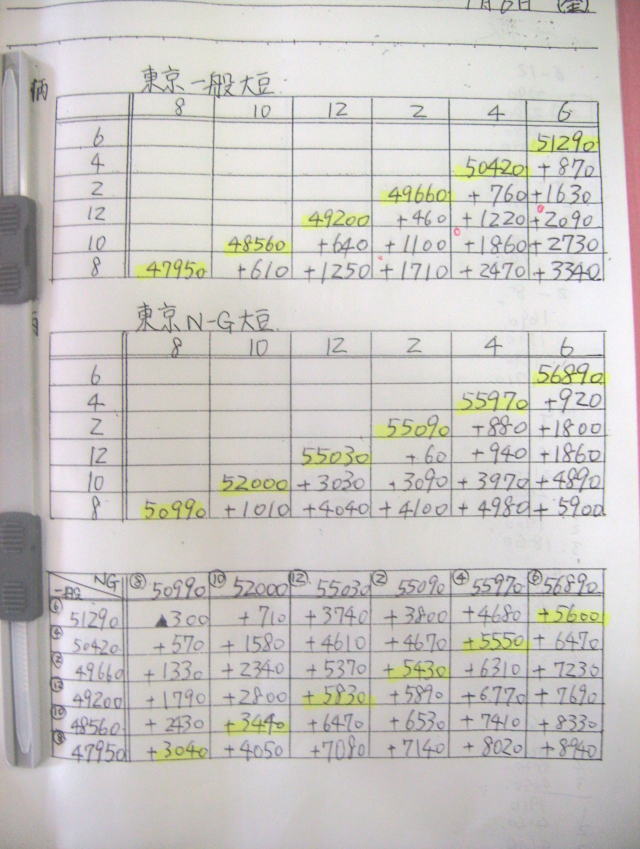 1月6日(金)
東京一般大豆
8 10 12 2 4 6
6 51290
4 50420 +870
2 49660 +760 +1630
12 49200 +460 +1220 +2090
10 48560 +640 +1100 +1860 +2730
8 47950 +610 +1250 +1710 +2470 +3340
東京N-G大豆
8 10 12 2 4 6
6 56890
4 55970 +920
2 55090 +880 +1800
12 55030 +60 +940 +1860
10 52000 +3030 +3090 +3970 +4890
8 50990 +1010 +4040 +4100 +4980 +5900
一般 NG ⑧ 50990 ⑩ 52000 ⑫ 55030 ② 55090 ④ 55970 ⑥ 56890
⑥ 51290 ▲300 +710 +3740 +3800 +4680 +5600
④ 50420 +570 +1580 +4610 +4670 +5550 +6470
② 49660 +1330 +2340 +5370 +5430 +6310 +7230
⑫ 49200 +1790 +2800 +5830 +5890 +6770 +7690
⑩ 48560 +2430 +3440 +6470 +6530 +7410 +8330
⑧ 47950 +3040 +4050 +7080 +7140 +8020 +8940